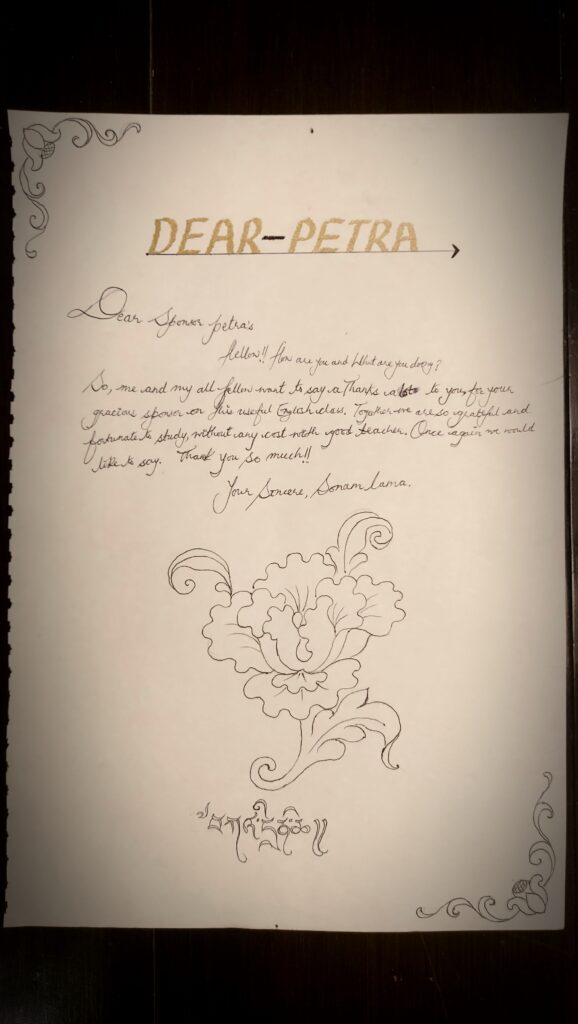 DEAR-PETRA
Dear Sponsor petra's
Hellow!! How are you and What are you doing?
So, me and my all fellow want to say a Thanks alots to you, for your
gracious sponsor on this useful English class. Together we are so grateful and
fortunate to study, without any cost with good teacher. Once again we would
like to say. Thank you so much!!
Your Sincere, Sonam Lama.
༄བཀའ་དྲིན་ཆེ།།